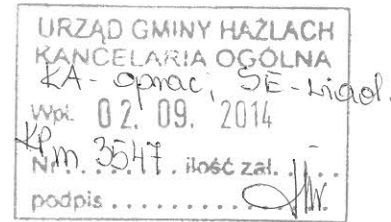 URZĄD GMINY HAŻLACH
KANCELARIA OGÓLNA
KA - oprac, SE - wiad.
Wpł. 02. 09. 2014
KP
Nr 3547 . ilość zał. . . .
podpis . . . . . . . . . .